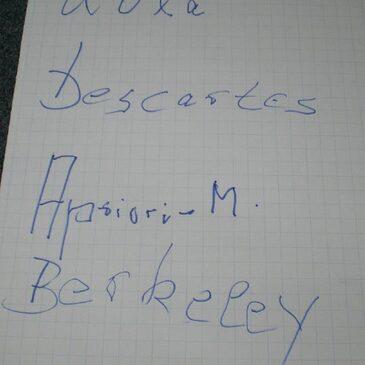 Descartes
Apriori-M.
Berkeley